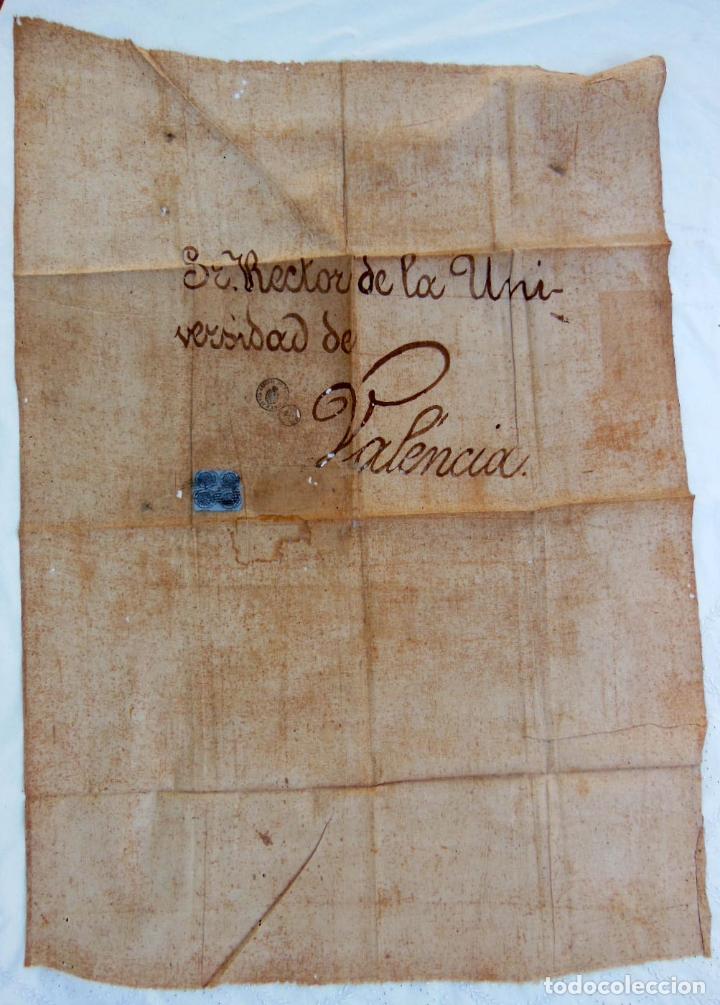 Sr. Rector de la Uni-
versidad de
Valencia.
todocoleccion